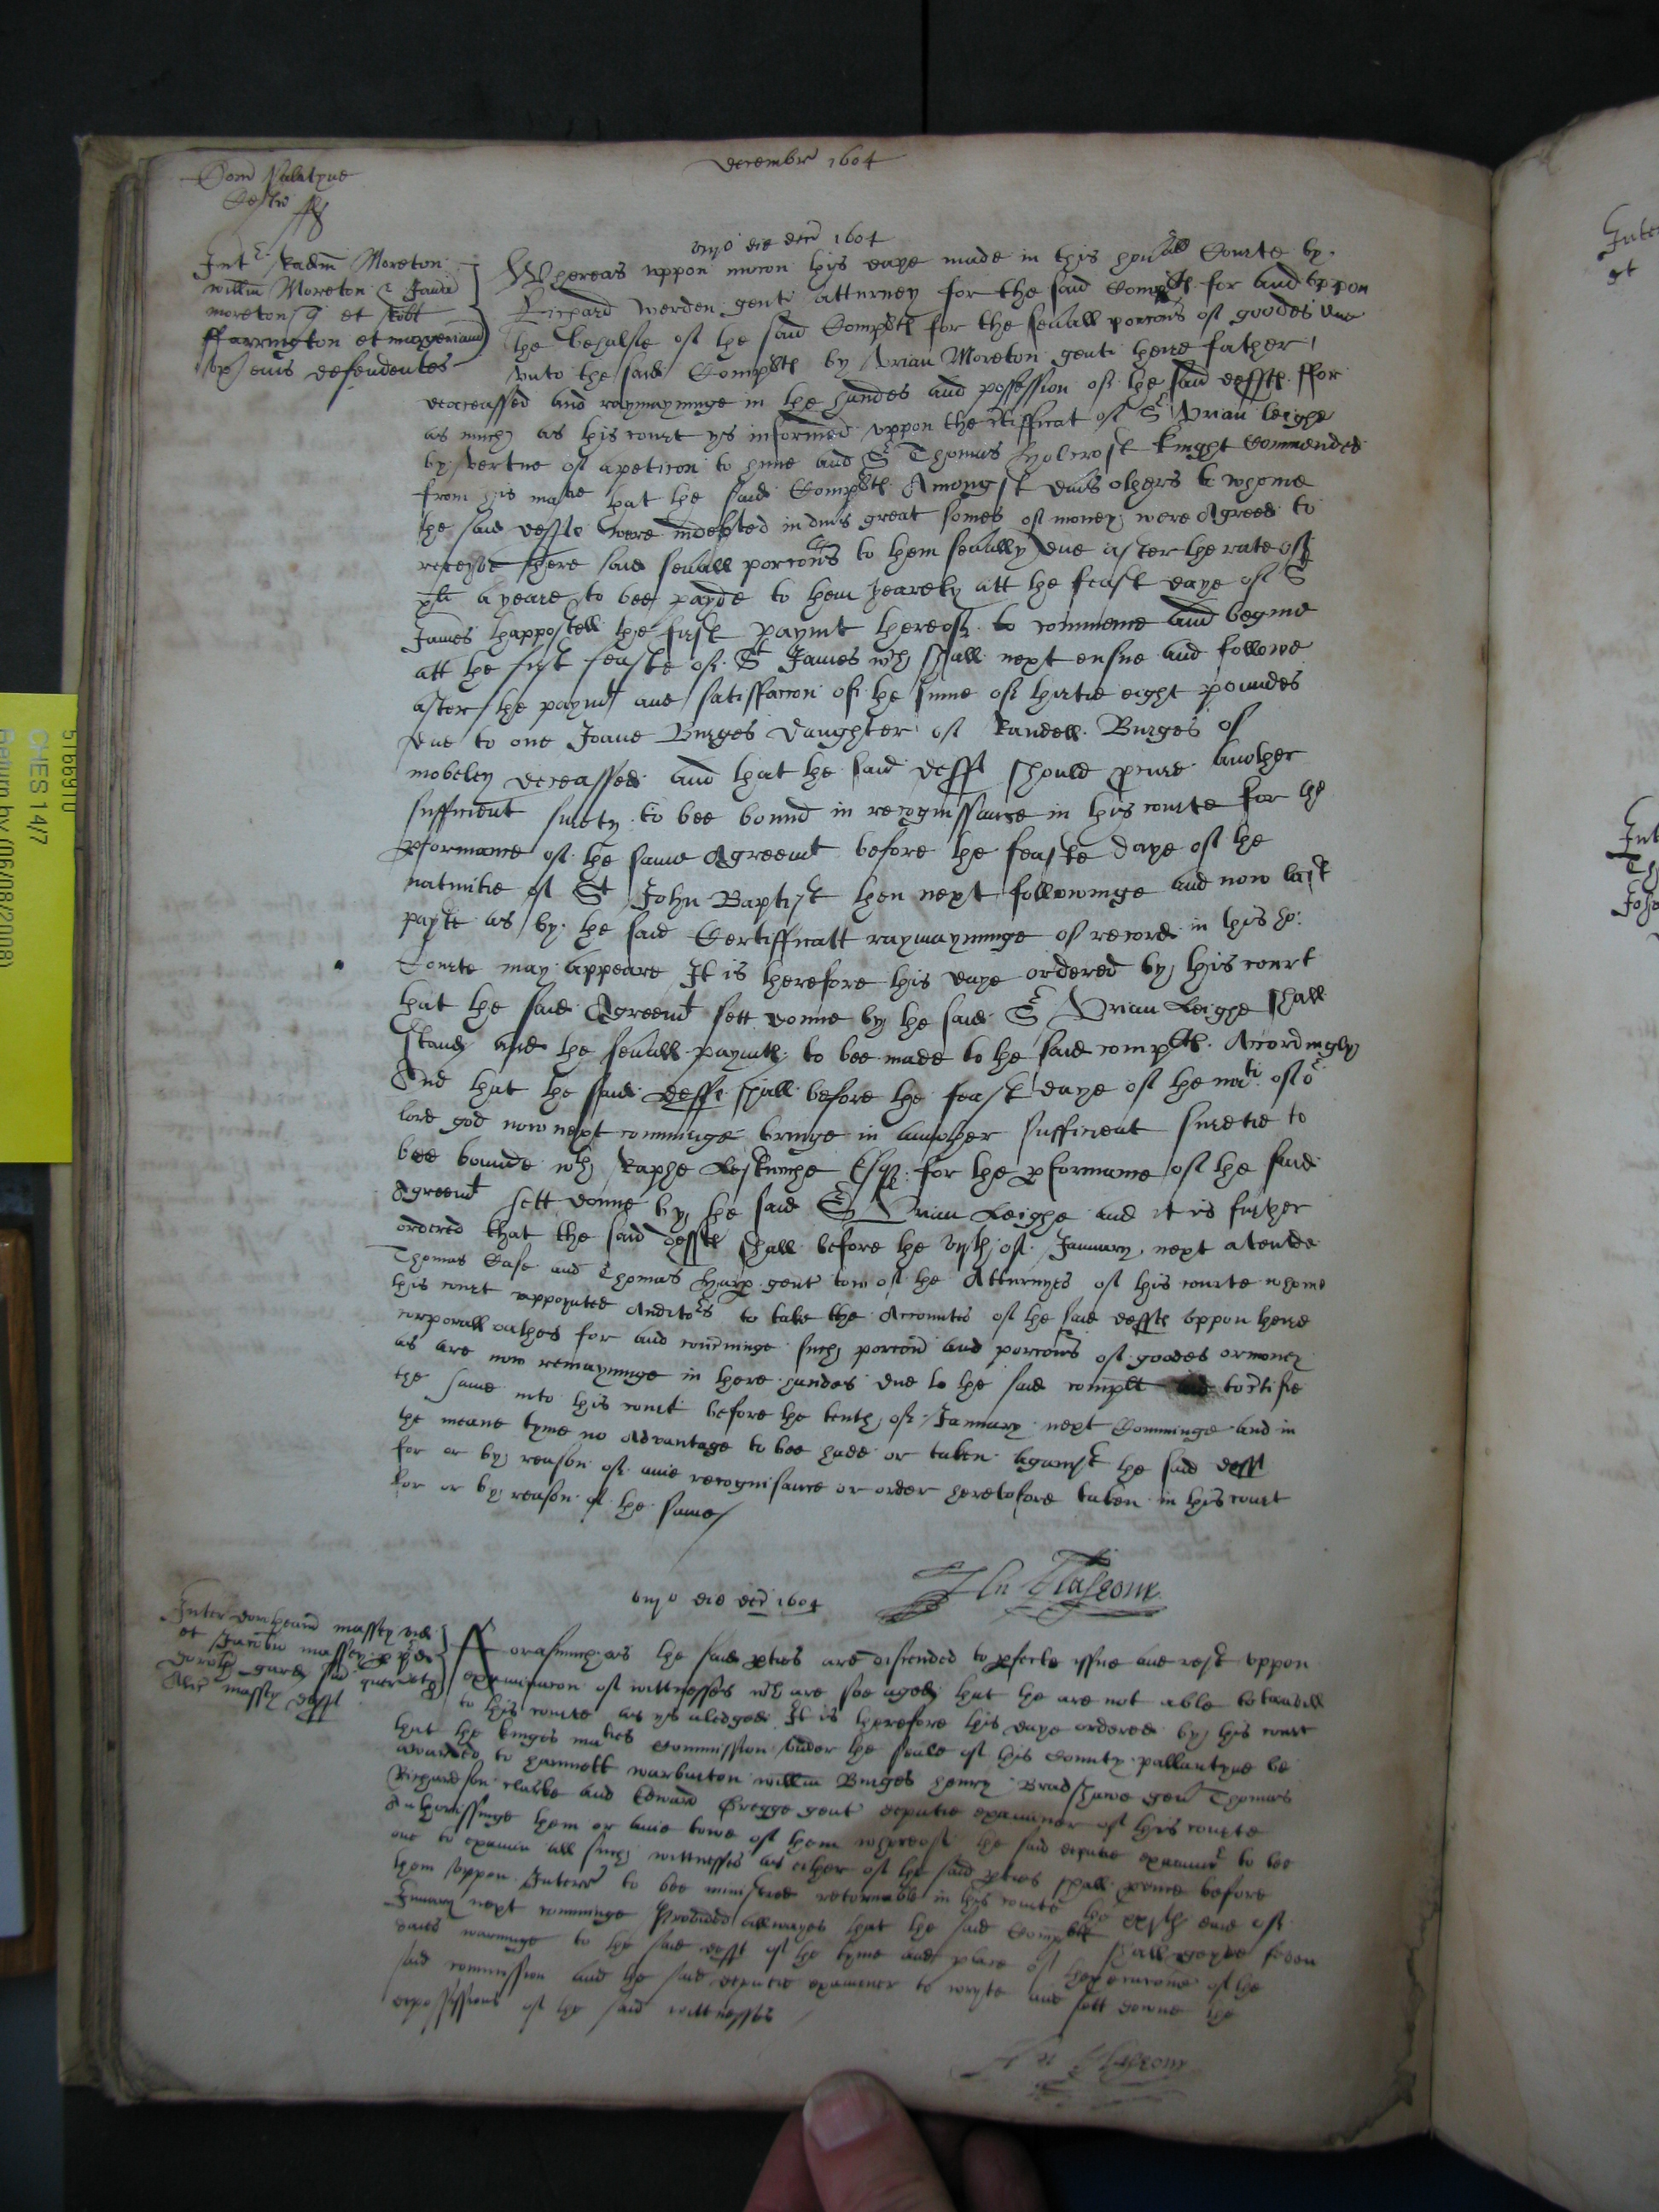 December 1604
Com Palatyne
Cestr ss
viijo die Decr 1604
Intr Radm Moreton
willm Moreton & Jana
moreton q et Robt
ffarrington et margeriam
vx eius defendentes
Whereas vppon mocon this daye made in this honrable Courte by
Richard werden gent Atturney for the said Complts for and vppon
the behalfe of the said Complts for the seuall porcons of goodes due
vnto the said Complts by Vrian Moreton gent theire father
deceassed and raymayninge in the handes and possession of the said defftes ffor
as much as this court ys informed vppon the certifficat of Sr Vrian Leighe
by vertue of a peticon to hime and Sr Thomas Holcroft knight Commended
from his matie that the said Complts Amongst diuers others to whome
the said deffts were indebted in diuers great somes of money were Agreed to
receyve there said seuall porcons to them seuallly due after the rate of
xli a yeare to bee payde to them yearely att the feast daye of St
James thappostell the first paymt thereof to commence and begine
att the first feaste of St James wch shall next ensue and followe
after the paymt and satisfaccon of the sume of thirtie eight poundes
due to one Joane Burges daughter of Randell Burges of
mobeley deceassed and that the said defft should pcure another
sufficient suerty to bee bound in recognissance in this courte for the
pformance of the same Agreemt before the feaste daye of the
natiuitie of St John Baptist then next followinge and now last
paste as by the said Certifficatt raymayninge of record in this ho:
Courte may appeare It is therefore this daye ordered by this court
that the said Agreemt sett downe by the said Sr Vrian Leighe shall
stand and the seuall paymts to bee made to the said complts Accordingly
And that the said defft shall before the feast daye of the nati: of or
lord god now next comminge bringe in another sufficient suretie to
bee bounde wth Raphe Leftwiche Esqr for the pformance of the said
Agreemt sett downe by the said Sr Vrian Leighe and it is further
ordered that the said deffts shall before the vjth of January next attende
Thomas Case and Thomas Harp gent tow of the Atturneyes of this courte whome
this court appoynted Auditors to take the Accountes of the said deffts vppon theire
corporall oathes for and concerninge such porcon and porcons of goodes or money
as are now remayninge in there handes due to the said complt and to certifie
the same into this court before the tenth of January next Comminge and in
the meane tyme no Advantage to bee hadd or taken against the said defft
for or by reason of anie recognisance or order heretofore taken in this court
for or by reason of the same
Hn Glaseour
viijo die Decr 1604
Inter massey vid
et massey
massey defft
fforasmuch as the said pties are discended to pfecte issue and rest vppon
examinacon of wittnesses wch are soe aged that the are not able to travell
to this courte as ys aledged It is therefore this daye ordered by this court
that the kinges maties Commission vnder the seale of this County pallantyne be
awarded to Hamnett warburton willm Burges Henry Bradshawe gent Thomas
Richardson clarke and Edward Gregge gent deputie examiner of this courte
Authorissinge them or anie towe of them whereof the said deputie examinr to bee
one to examin all such wittnesses as either of the said pties shall pduce before
them vppon Interr to bee ministred retornable in this courte the xxjth daie of
January next comminge Provided allwayes that the said Complt shall geyve seven
daies warninge to the said defft of the tyme and place of thexecucone of the
said commission and the said deputie examiner to wryte and sett downe the
depossissions of the said wittnesses
Hn Glaseour
5166910
CHES 14/7
Return by (06/08/2008)